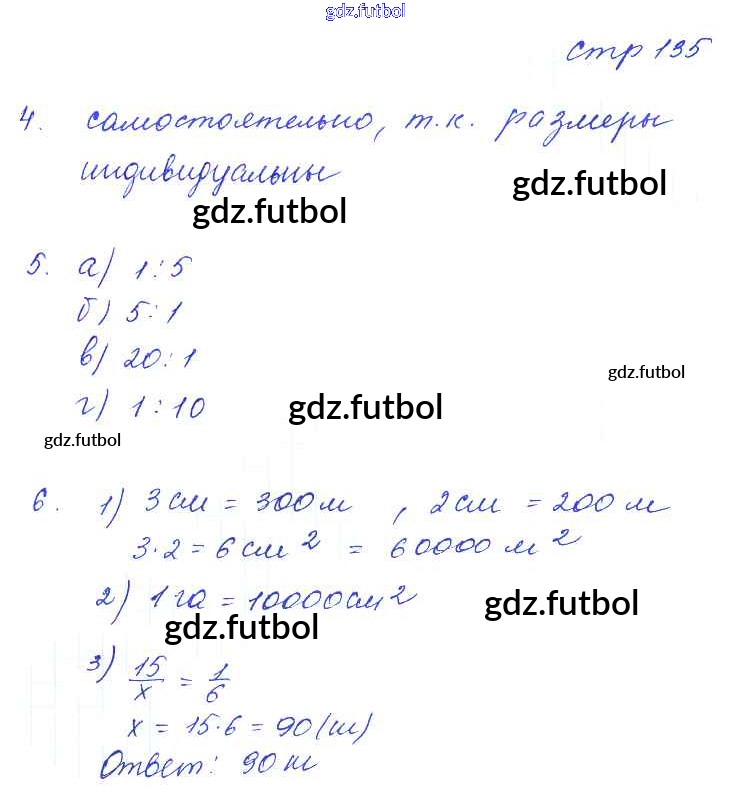 gdz.futbol
стр 135
4. самостоятельно, т.к. размеры
индивидуальны
gdz.futbol
gdz.futbol
5. а) 1:5
б) 5:1
в) 20:1
gdz.futbol
г) 1:10
gdz.futbol
gdz.futbol
6. 1) 3 см = 300 м , 2 см = 200 м
3·2 = 6 см² = 60000 м²
2) 1 га = 10000 см²
gdz.futbol
gdz.futbol
3) 15/х = 1/6
х = 15·6 = 90 (ц)
Ответ: 90 ц